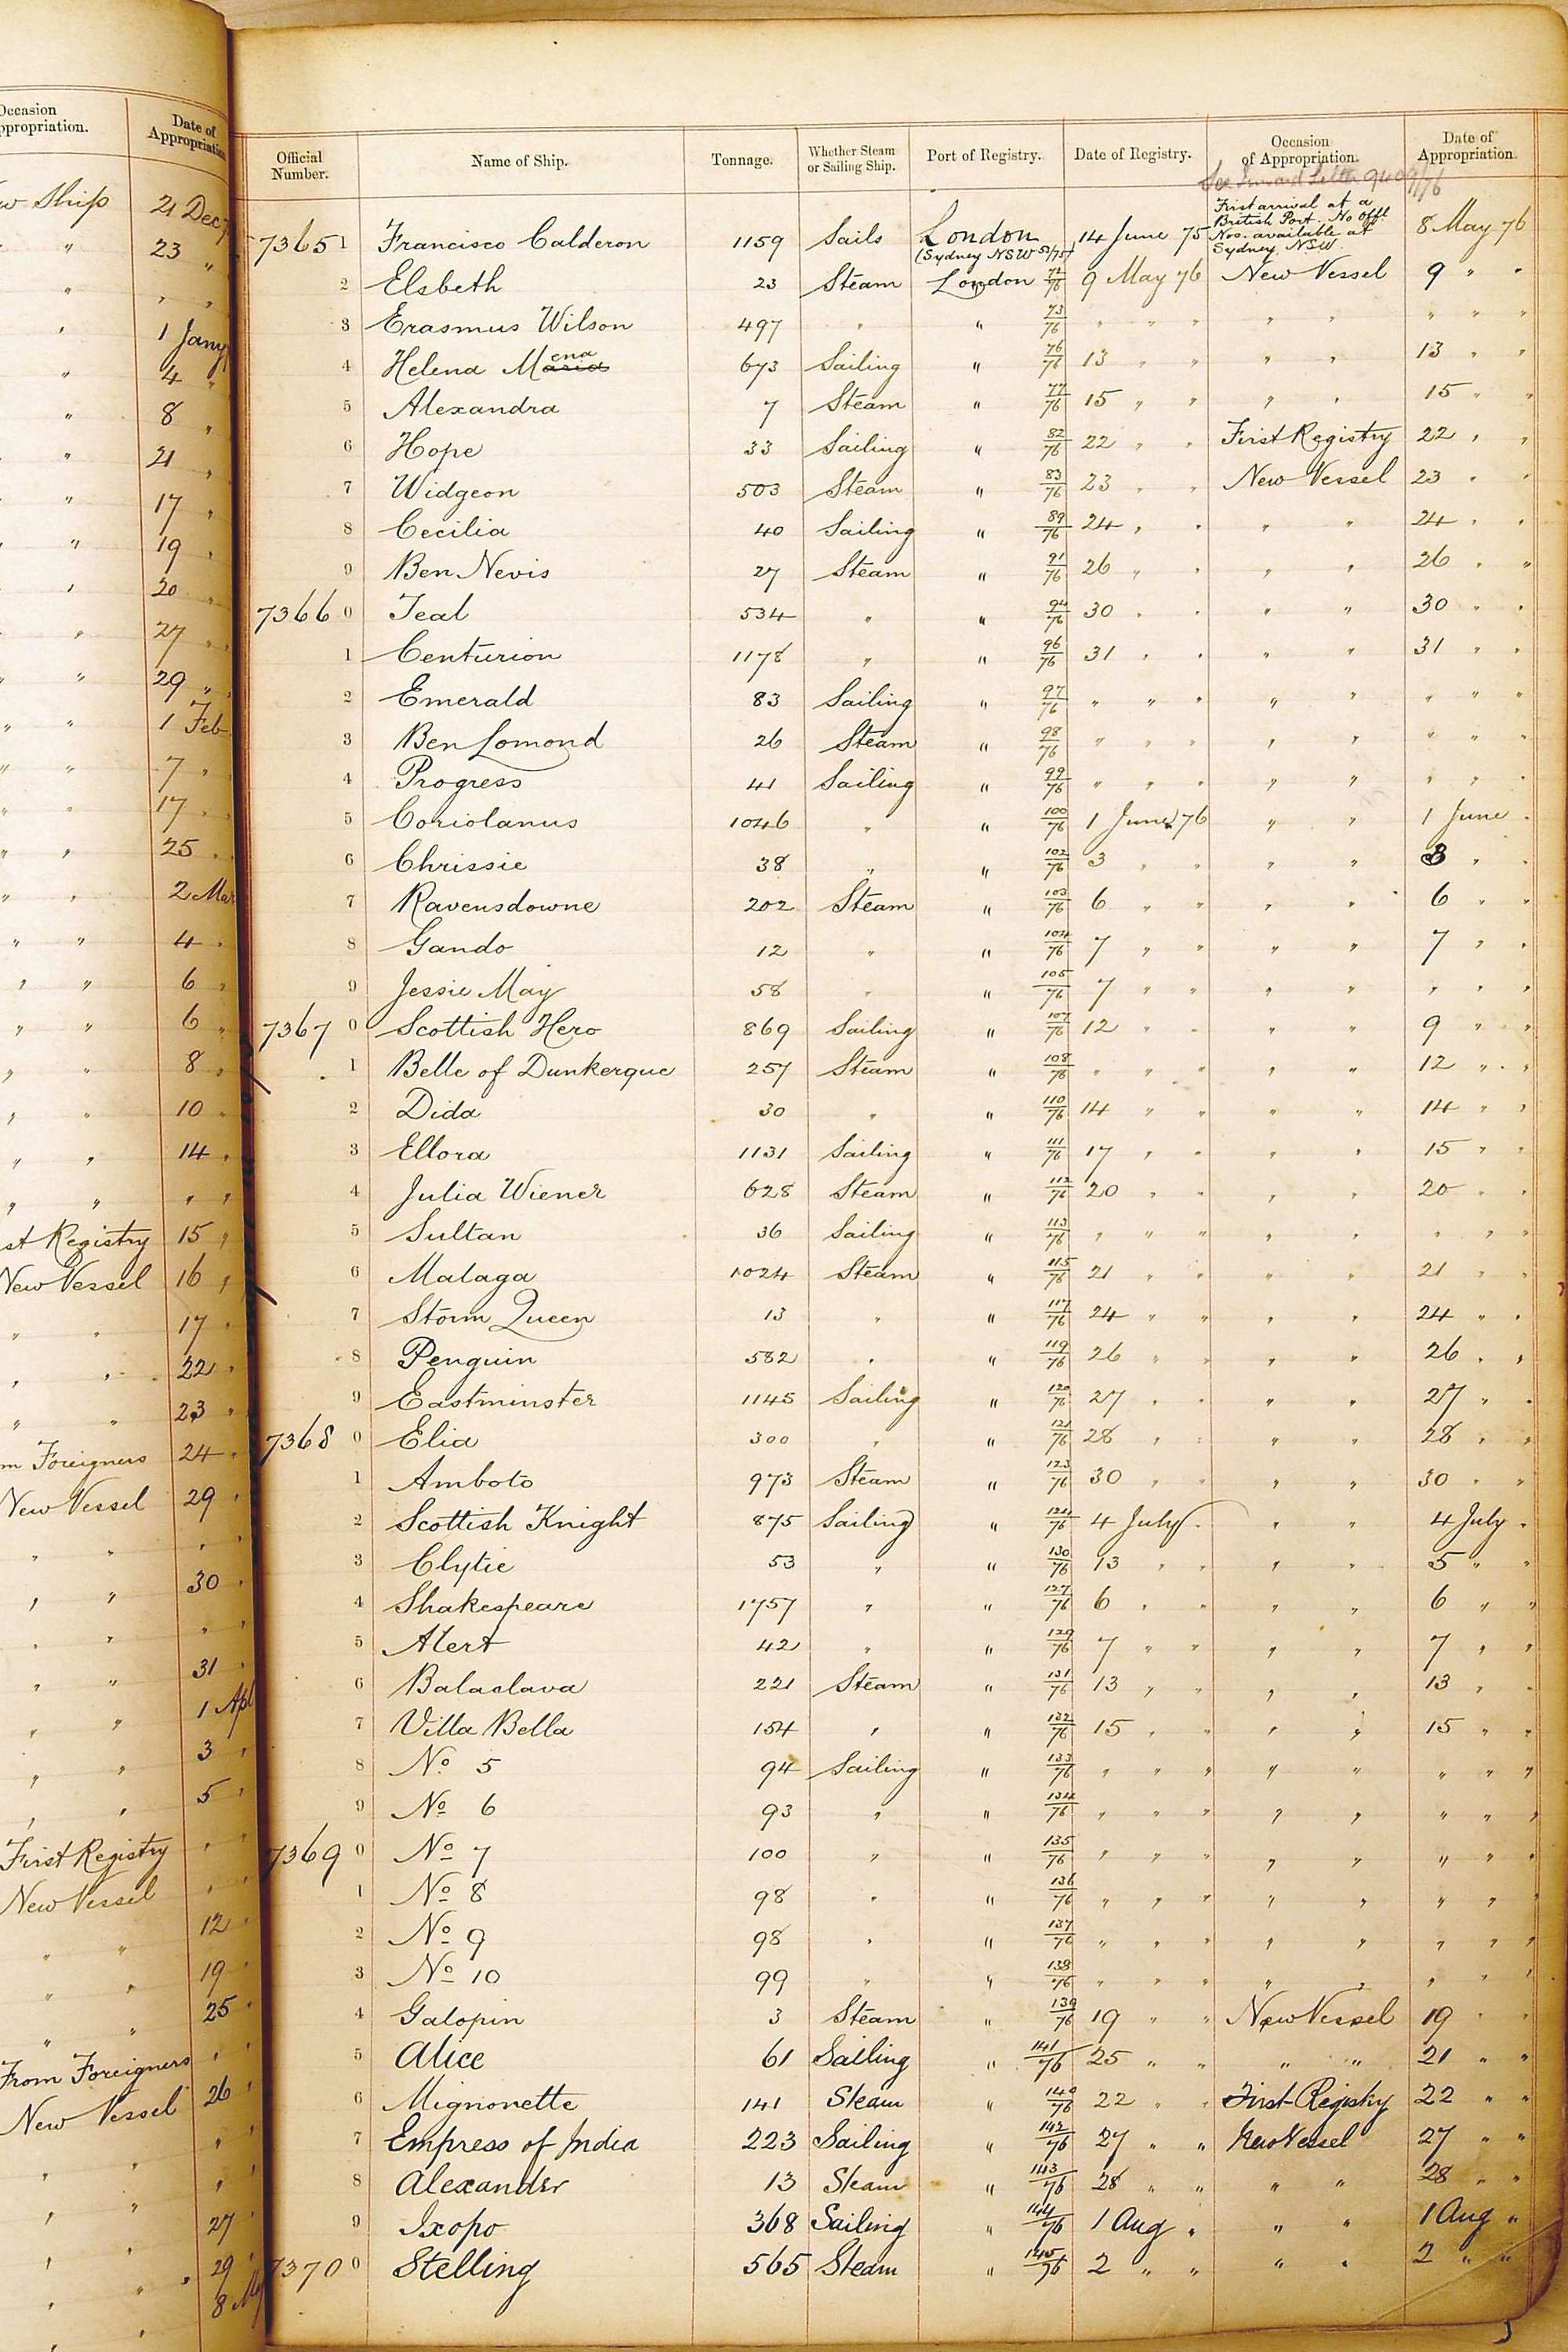 Occasion
ppropriation.
Date of
Appropriation
w Ship 21 Dec
" 23 "
" " "
" 1 Jany
" 4 "
" 8 "
" 21 "
" 17 "
" " 19 "
" 20 "
" 27 "
" " 29 "
" " 1 Feb
" " 7 "
" " 17 "
" " 25 "
" " 2 Mar
" " 4 "
" " 6 "
" " 6 "
" " 8 "
" " 10 "
" " 14 "
" " " "
st Registry 15 "
New Vessel 16 "
" " 17 "
" " 22 "
" " 23 "
m Foreigners 24 "
New Vessel 29 "
" " "
" " 30 "
" " " "
" " 31 "
" " 1 Apl
" " 3 "
" " 5 "
First Registry " "
New Vessel " "
" " 12 "
" " 19 "
" " 25 "
From Foreigners " "
New Vessel 26 "
" " " "
" " " "
" " 27 "
" " 29 "
" " 8 My
Official Number. Name of Ship. Tonnage. Whether Steam or Sailing Ship. Port of Registry. Date of Registry. Occasion of Appropriation. Date of Appropriation.
See Inward Letter 9409/76
First arrival at a
British Port. No Offl
Nos. available at
Sydney, N.S.W.
7365 1 Francisco Calderon 1159 Sails London 14 June 75 8 May 76
(Sydney NSW 51/75)
2 Elsbeth 23 Steam London 72/76 9 May 76 New Vessel 9 " "
3 Erasmus Wilson 497 " " 73/76 " " " " " " " "
4 Helena Maria ena 673 Sailing " 76/76 13 " " " " 13 " "
5 Alexandra 7 Steam " 77/76 15 " " " " 15 " "
6 Hope 33 Sailing " 82/76 22 " " First Registry 22 " "
7 Widgeon 503 Steam " 83/76 23 " " New Vessel 23 " "
8 Cecilia 40 Sailing " 89/76 24 " " " " 24 " "
9 Ben Nevis 27 Steam " 91/76 26 " " " " 26 " "
7366 0 Teal 534 " " 94/76 30 " " " " 30 " "
1 Centurion 1178 " " 96/76 31 " " " " 31 " "
2 Emerald 83 Sailing " 97/76 " " " " " " " "
3 Ben Lomond 26 Steam " 98/76 " " " " " " " "
4 Progress 41 Sailing " 99/76 " " " " " " " "
5 Coriolanus 1046 " " 100/76 1 June 76 " " 1 June "
6 Chrissie 38 " " 102/76 3 " " " " 3 " "
7 Ravensdowne 202 Steam " 103/76 6 " " " " 6 " "
8 Gando 12 " " 104/76 7 " " " " 7 " "
9 Jessie May 58 " " 105/76 7 " " " " " " "
7367 0 Scottish Hero 869 Sailing " 107/76 12 " " " " 9 " "
1 Belle of Dunkerque 257 Steam " 108/76 " " " " " 12 " "
2 Dida 30 " " 110/76 14 " " " " 14 " "
3 Ellora 1131 Sailing " 111/76 17 " " " " 15 " "
4 Julia Wiener 628 Steam " 112/76 20 " " " " 20 " "
5 Sultan 36 Sailing " 113/76 " " " " " " " "
6 Malaga 1024 Steam " 115/76 21 " " " " 21 " "
7 Storm Queen 13 " " 117/76 24 " " " " 24 " "
8 Penguin 582 " " 119/76 26 " " " " 26 " "
9 Eastminster 1145 Sailing " 120/76 27 " " " " 27 " "
7368 0 Elia 300 " " 121/76 28 " " " " 28 " "
1 Amboto 973 Steam " 123/76 30 " " " " 30 " "
2 Scottish Knight 875 Sailing " 124/76 4 July " " " 4 July "
3 Clytie 53 " " 130/76 13 " " " " 5 " "
4 Shakespeare 1757 " " 127/76 6 " " " " 6 " "
5 Alert 42 " " 129/76 7 " " " " 7 " "
6 Balaclava 221 Steam " 131/76 13 " " " " 13 " "
7 Villa Bella 154 " " 132/76 15 " " " " 15 " "
8 No 5 94 Sailing " 133/76 " " " " " " " "
9 No 6 93 " " 134/76 " " " " " " " "
7369 0 No 7 100 " " 135/76 " " " " " " " "
1 No 8 98 " " 136/76 " " " " " " " "
2 No 9 98 " " 137/76 " " " " " " " "
3 No 10 99 " " 138/76 " " " " " " " "
4 Galopin 3 Steam " 139/76 19 " " New Vessel 19 " "
5 Alice 61 Sailing " 141/76 25 " " " " 21 " "
6 Mignonette 141 Steam " 140/76 22 " " First Registry 22 " "
7 Empress of India 223 Sailing " 142/76 27 " " New Vessel 27 " "
8 Alexander 13 Steam " 143/76 28 " " " " 28 " "
9 Ixopo 368 Sailing " 144/76 1 Aug " " " 1 Aug "
7370 0 Stelling 565 Steam " 145/76 2 " " " " 2 " "